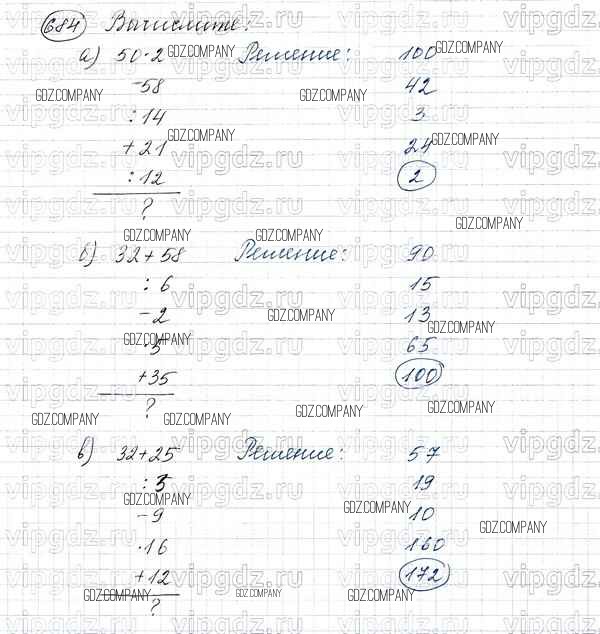 684 Вычислите:
а) 50·2 Решение: 100
-58 42
:14 3
+21 24
:12 2
?
б) 32+58 Решение: 90
:6 15
-2 13
·5 65
+35 100
?
в) 32+25 Решение: 57
:3 19
-9 10
·16 160
+12 172
?